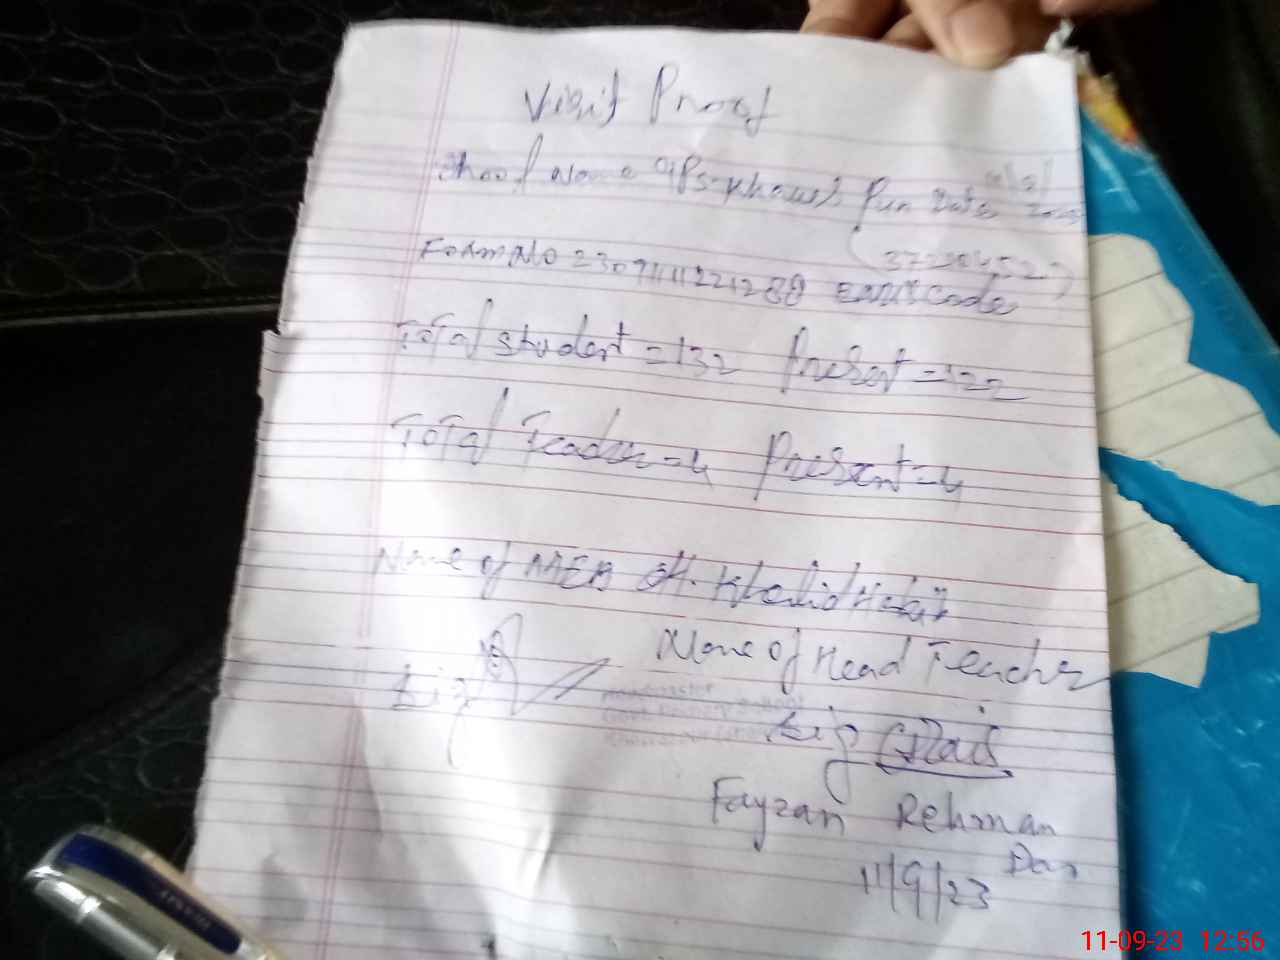 Visit Proof
School Name GPS
Form No 230911111221288 EMIS Code
Total Student = 132 Present = 122
Total Teacher = 4 Present = 4
Name of MEA Ch. Khalid
Name of Head Teacher
Sig
Headmaster
Govt. Primary School
Sig
Fayzan Rehman
Dar
11/9/23
11-09-23 12:56